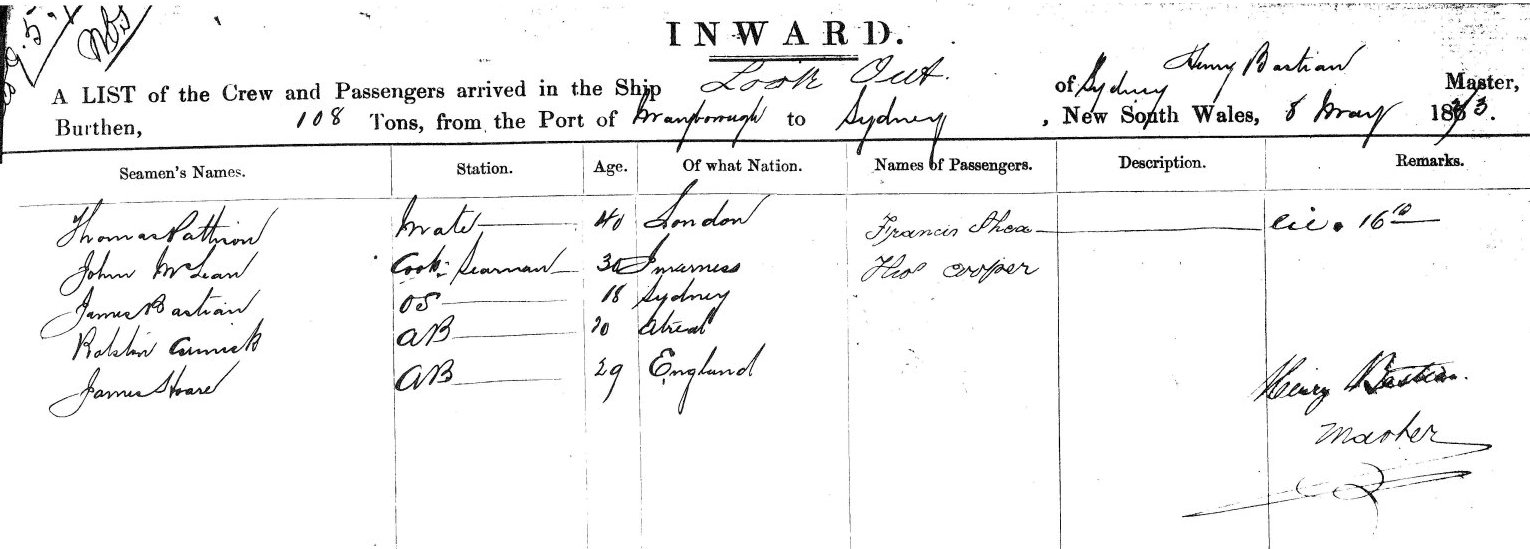 INWARD.
A LIST of the Crew and Passengers arrived in the Ship Look Out of Sydney Henry Bastian Master,
Burthen, 108 Tons, from the Port of Maryborough to Sydney, New South Wales, 8 May 1873.
Seamen's Names. Station. Age. Of what Nation. Names of Passengers. Description. Remarks.
Thomas Pattison Mate 40 London Francis Shea
John McLean Cook Seaman 30 Inverness Thos Cooper
James Bastian OS 18 Sydney
AB 20
James Hoare AB 29 England
Henry Bastian
Master